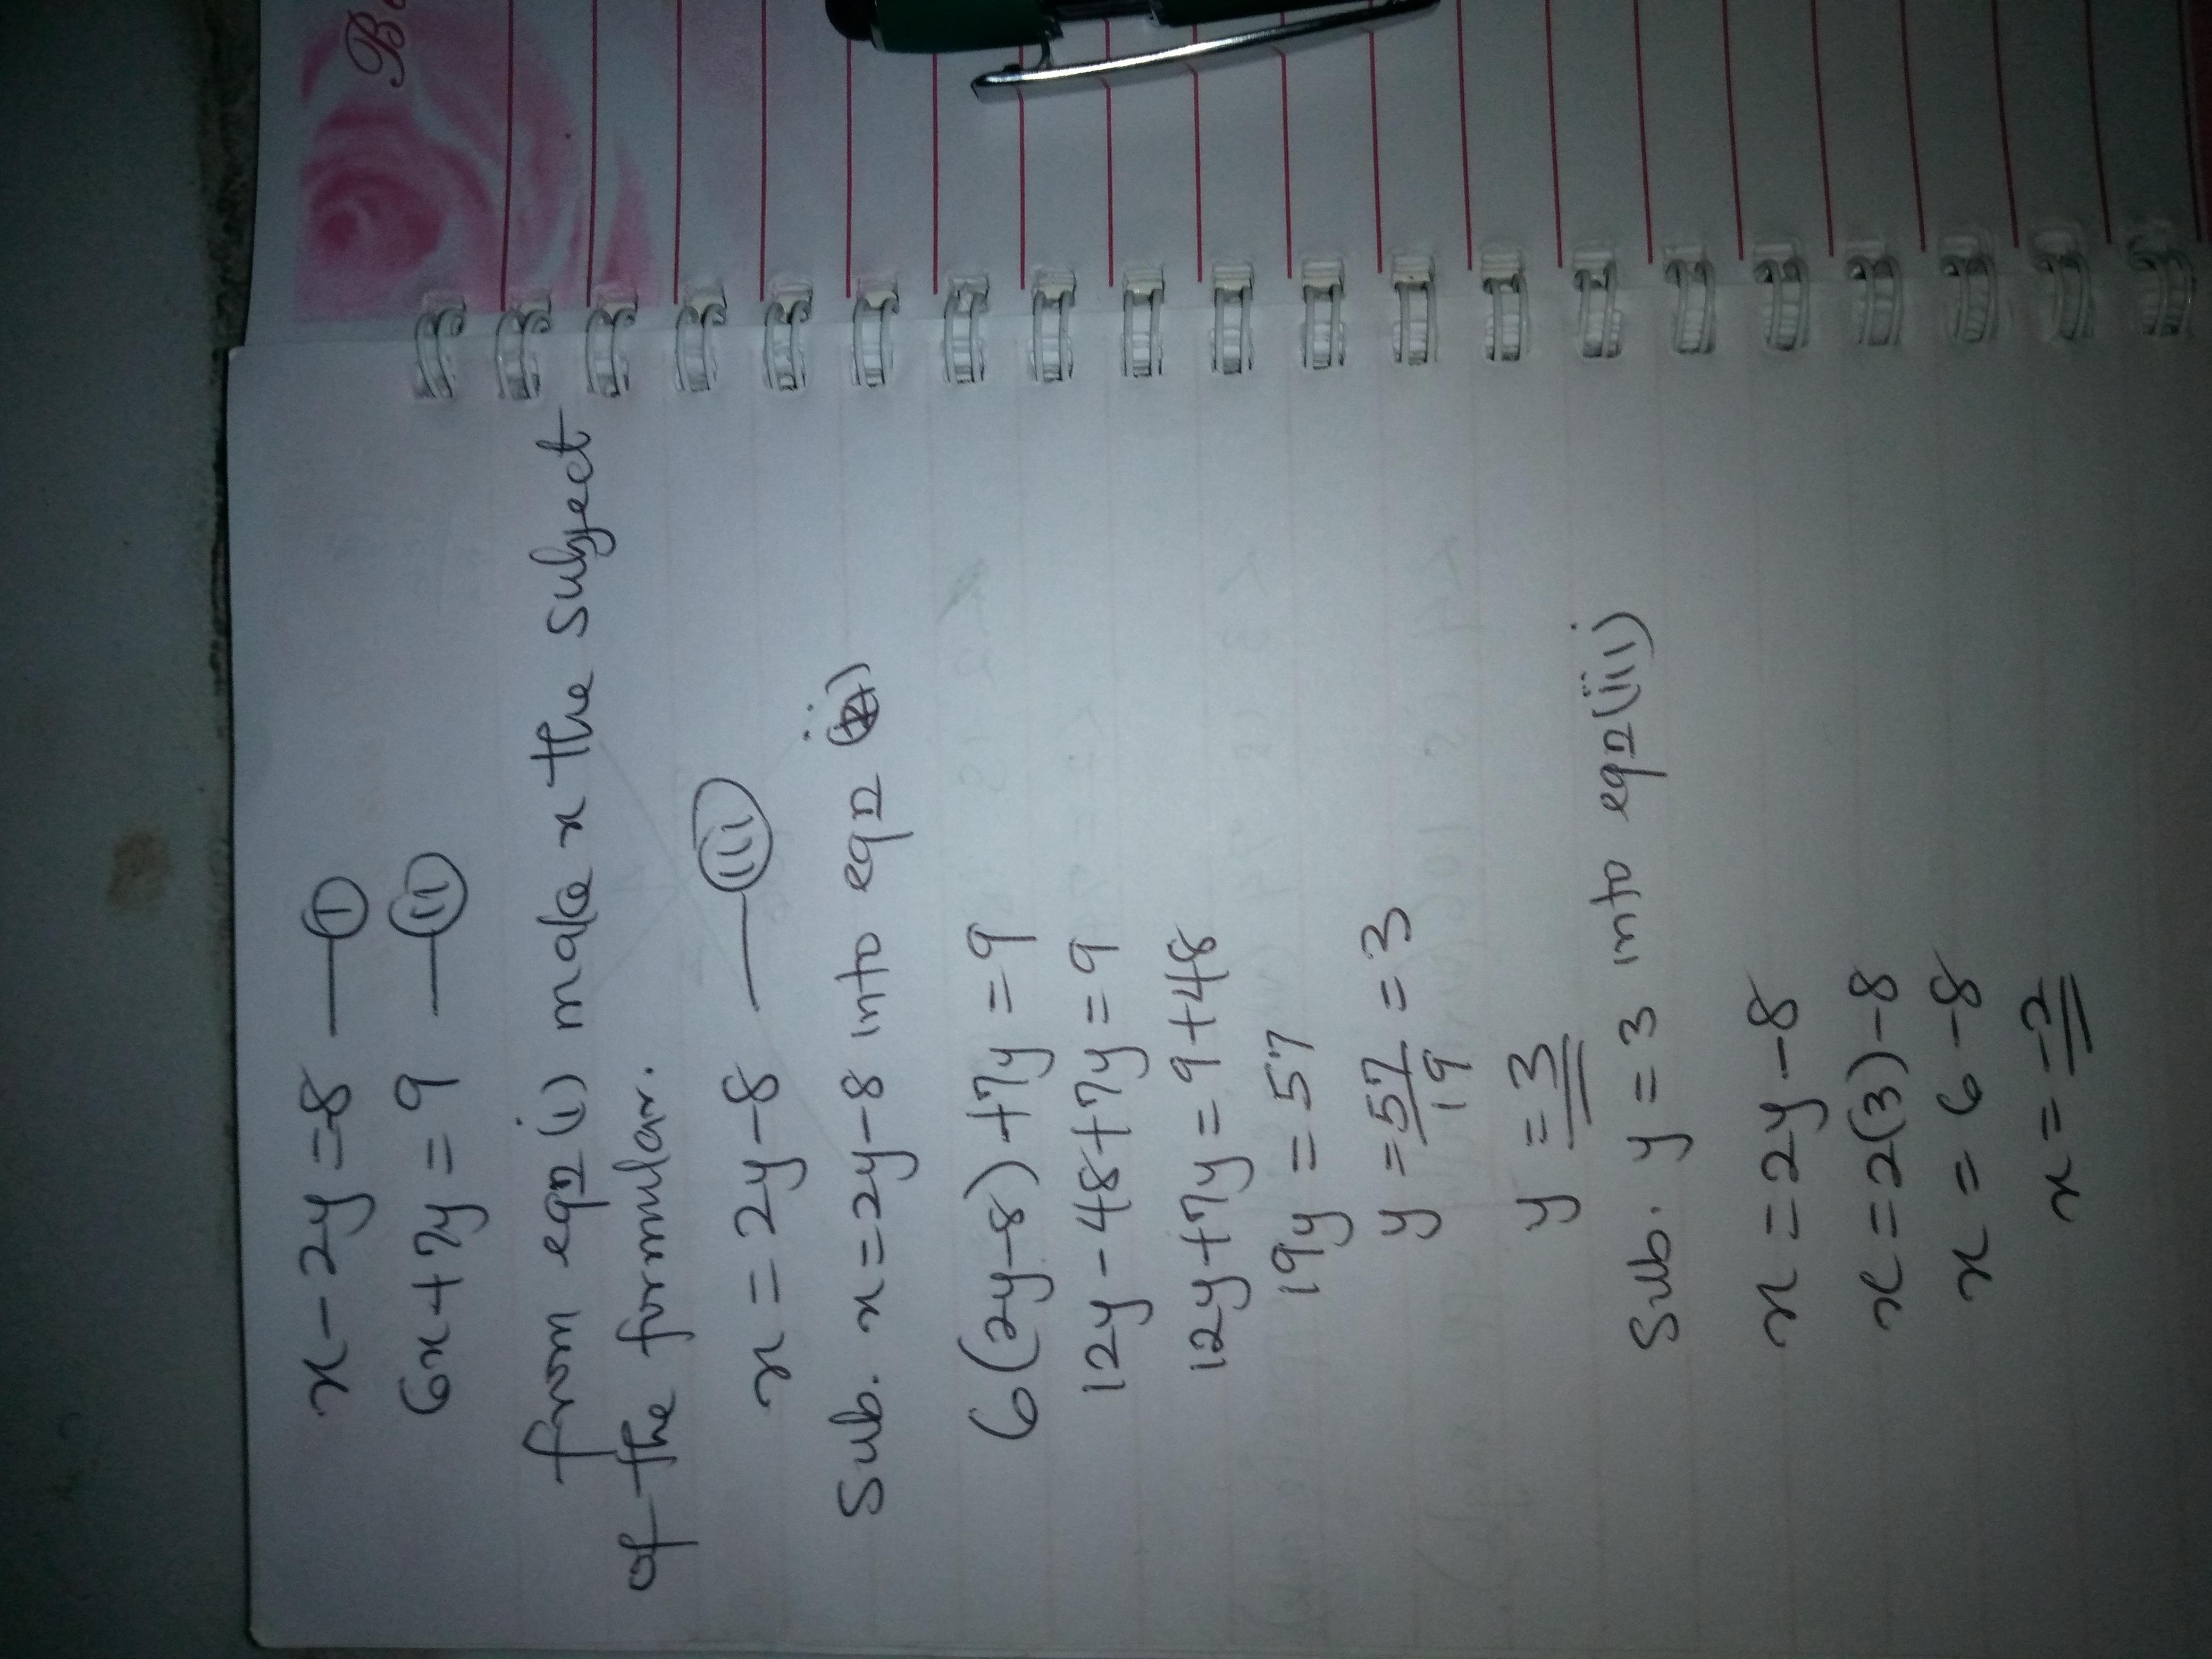 x - 2y = -8 — (i)
6x + 7y = 9 — (ii)
from eqn (i) make x the subject
of the formular.
x = 2y - 8 — (iii)
Sub. x = 2y - 8 into eqn (ii)
6(2y-8) + 7y = 9
12y - 48 + 7y = 9
12y + 7y = 9 + 48
19y = 57
y = 57/19 = 3
y = 3
Sub. y = 3 into eqn (iii)
x = 2y - 8
x = 2(3) - 8
x = 6 - 8
x = -2